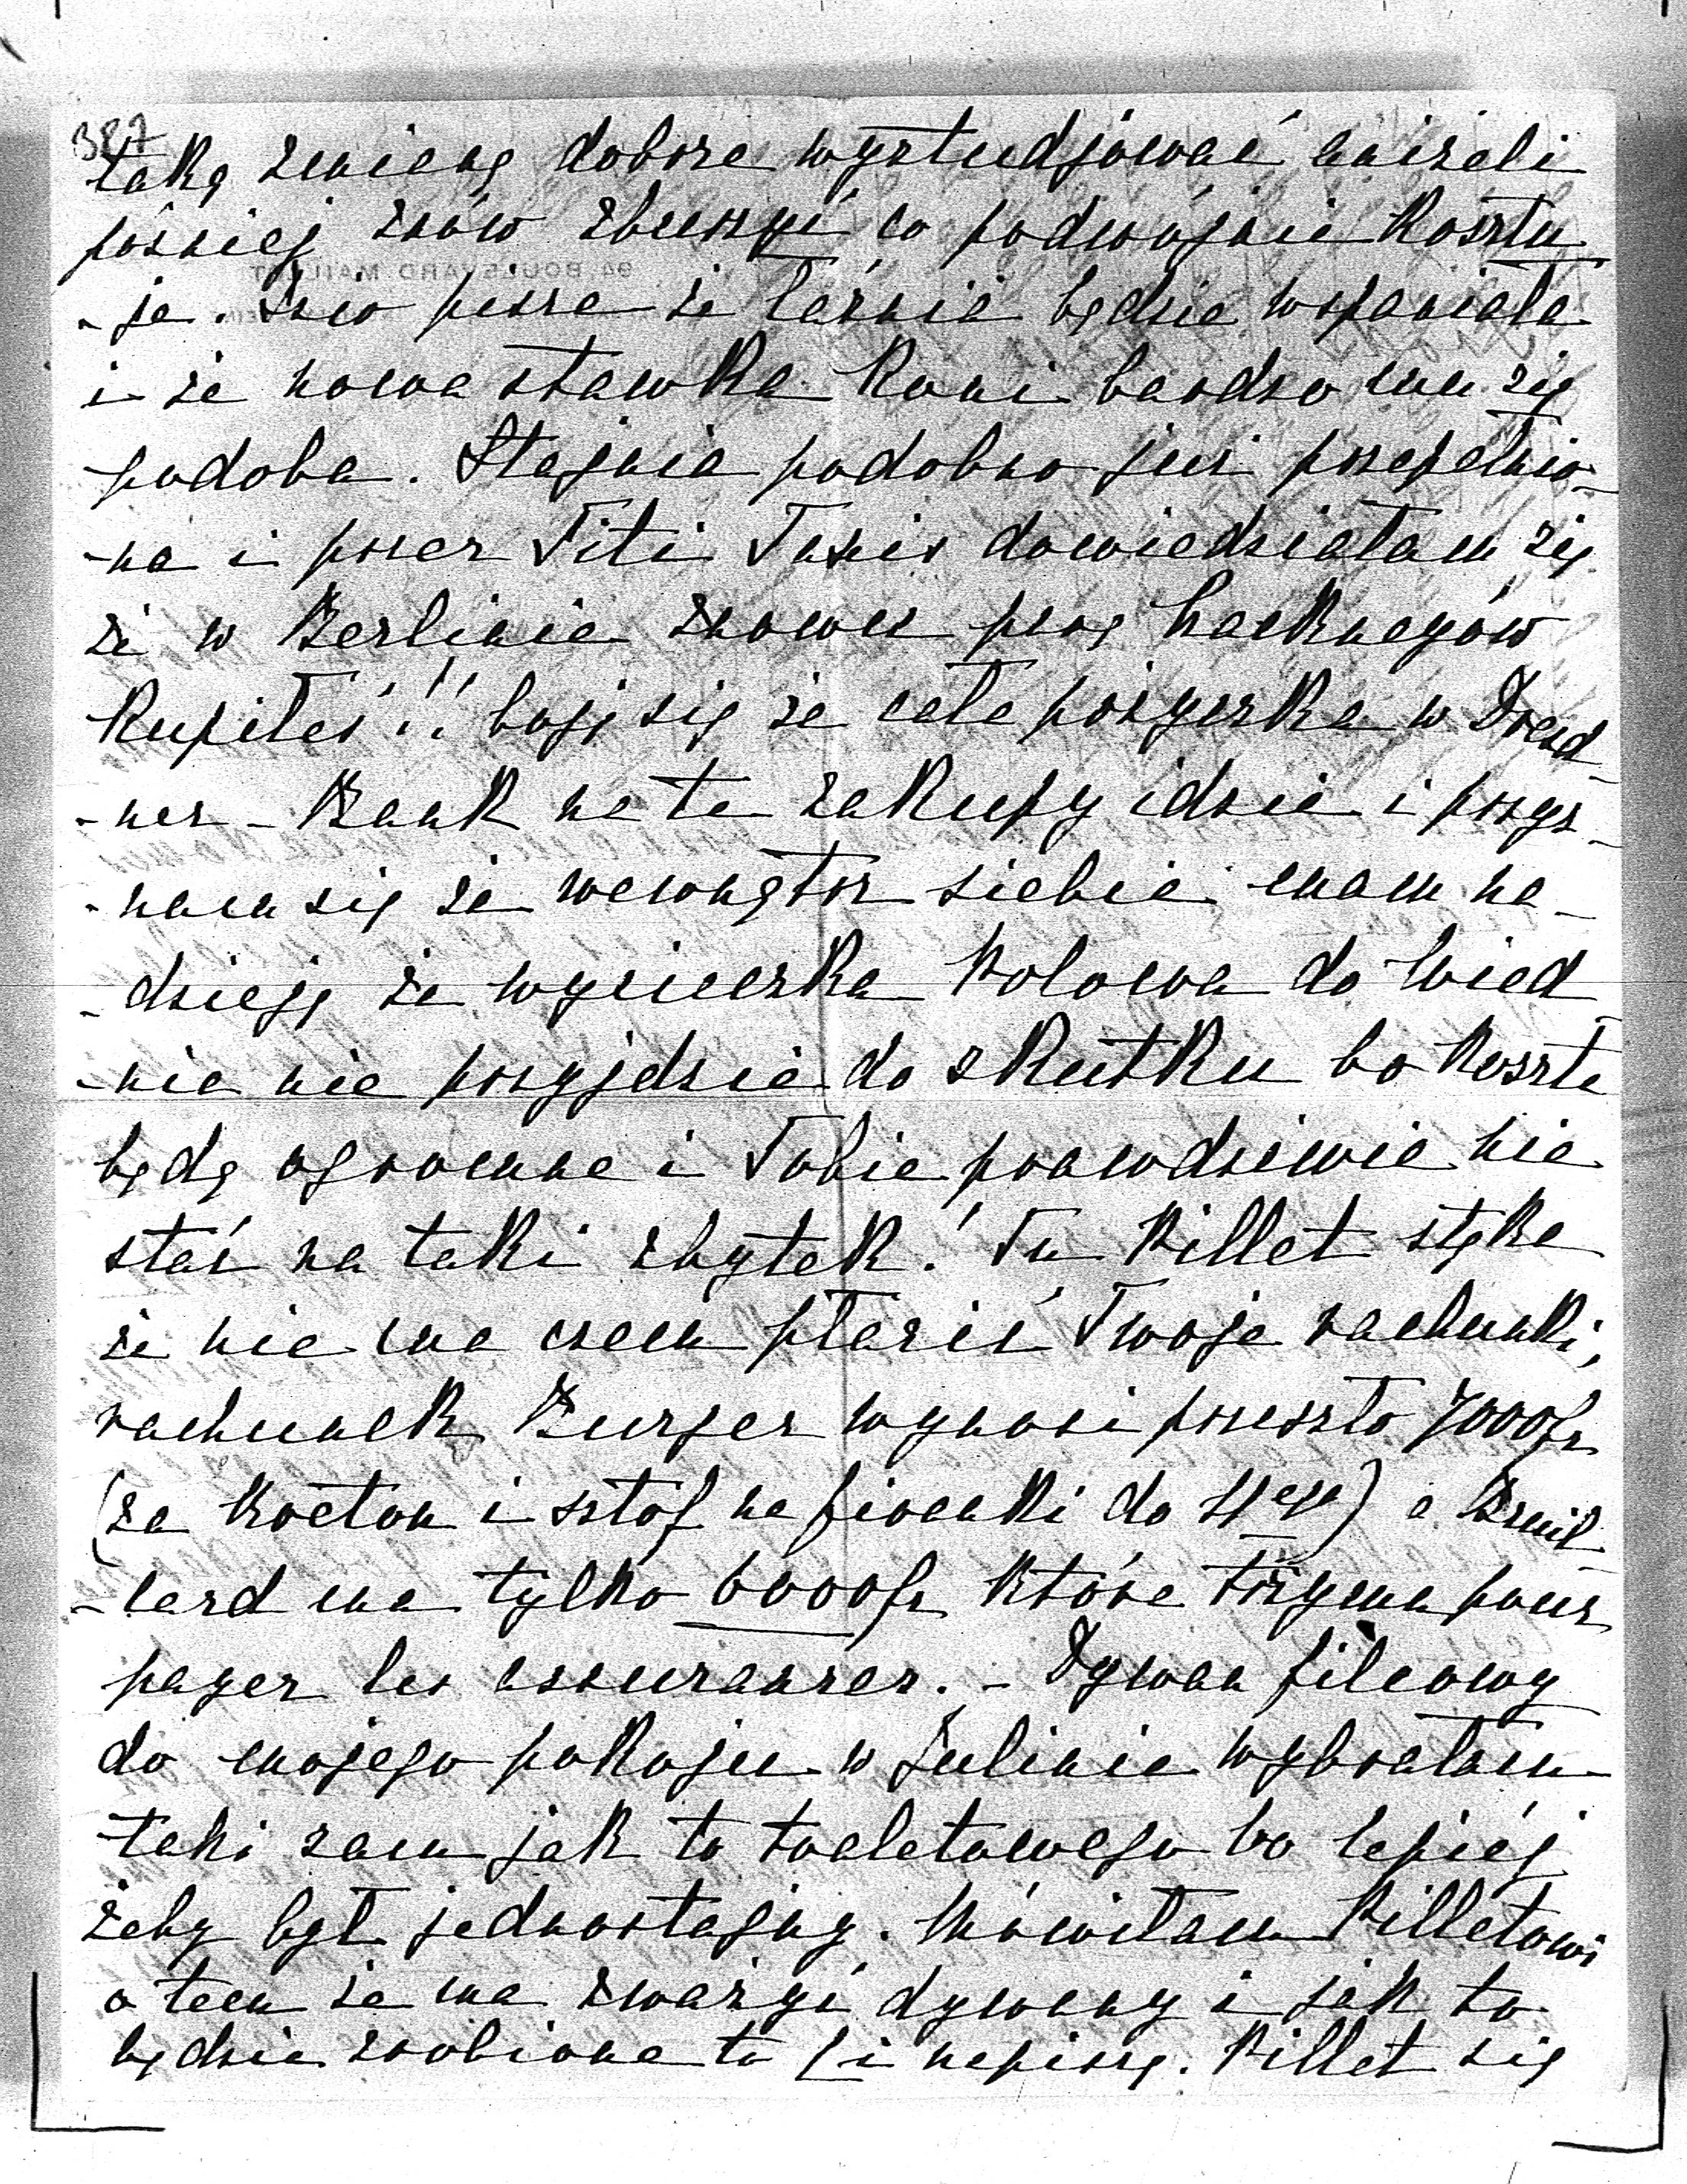 387
taką zmianę dobrze wystudjować aniżeli
późniéj znów zburzyć co podwójnie kosztu
-je. pisze że łaźnia będzie wspaniała
i że nowa stawka koni bardzo mu się
podoba. Stajnia podobno już przepełnio-
-na i przez Titi Taxis dowiedziałam się
że w Berlinie znowu parę hacknayów
kupiłeś!! boję się że cała pożyczka w Dresd-
-ner-Bank na te zakupy idzie i przyz-
-nam się że wewnątrz siebie mam na-
-dzieję że wycieczka kolowa do Wied
-nia nie przyjdzie do skutku bo koszta
będą ogromne i Tobie prawdziwie nie
stać na taki zbytek! Tu Pillet stęka
że nie ma czem płacić Twoje rachunki,
rachunek Burger wynosi przeszło 7000fr
(za kreton i sztof na firanki do H^ego) a Bruil-
-lard ma tylko 6000fr które trzyma pour
payer les assurances. - Dywan filcowy
do mojego pokoju w Julinie wybrałam
taki sam jak to toaletowego bo lepiéj
żeby był jednostajny. Mówiłam Pilletowi
o tem że ma zważyć dywany i jak to
będzie zrobione to Ci napiszę. Pillet się
94, BOULEVARD MAILLOT